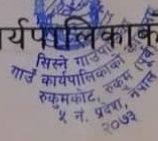 र्यपालिकाक
सिस्ने गाउँपा
गाउँ कार्यपालिकाको
रुकुमकोट, रुकुम (पूर्व)
५ नं. प्रदेश, नेपाल
२०७३